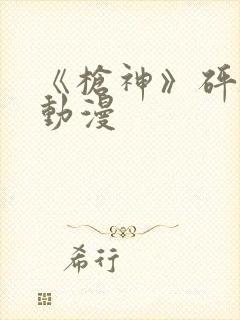 《槍神》砰
動漫
希行